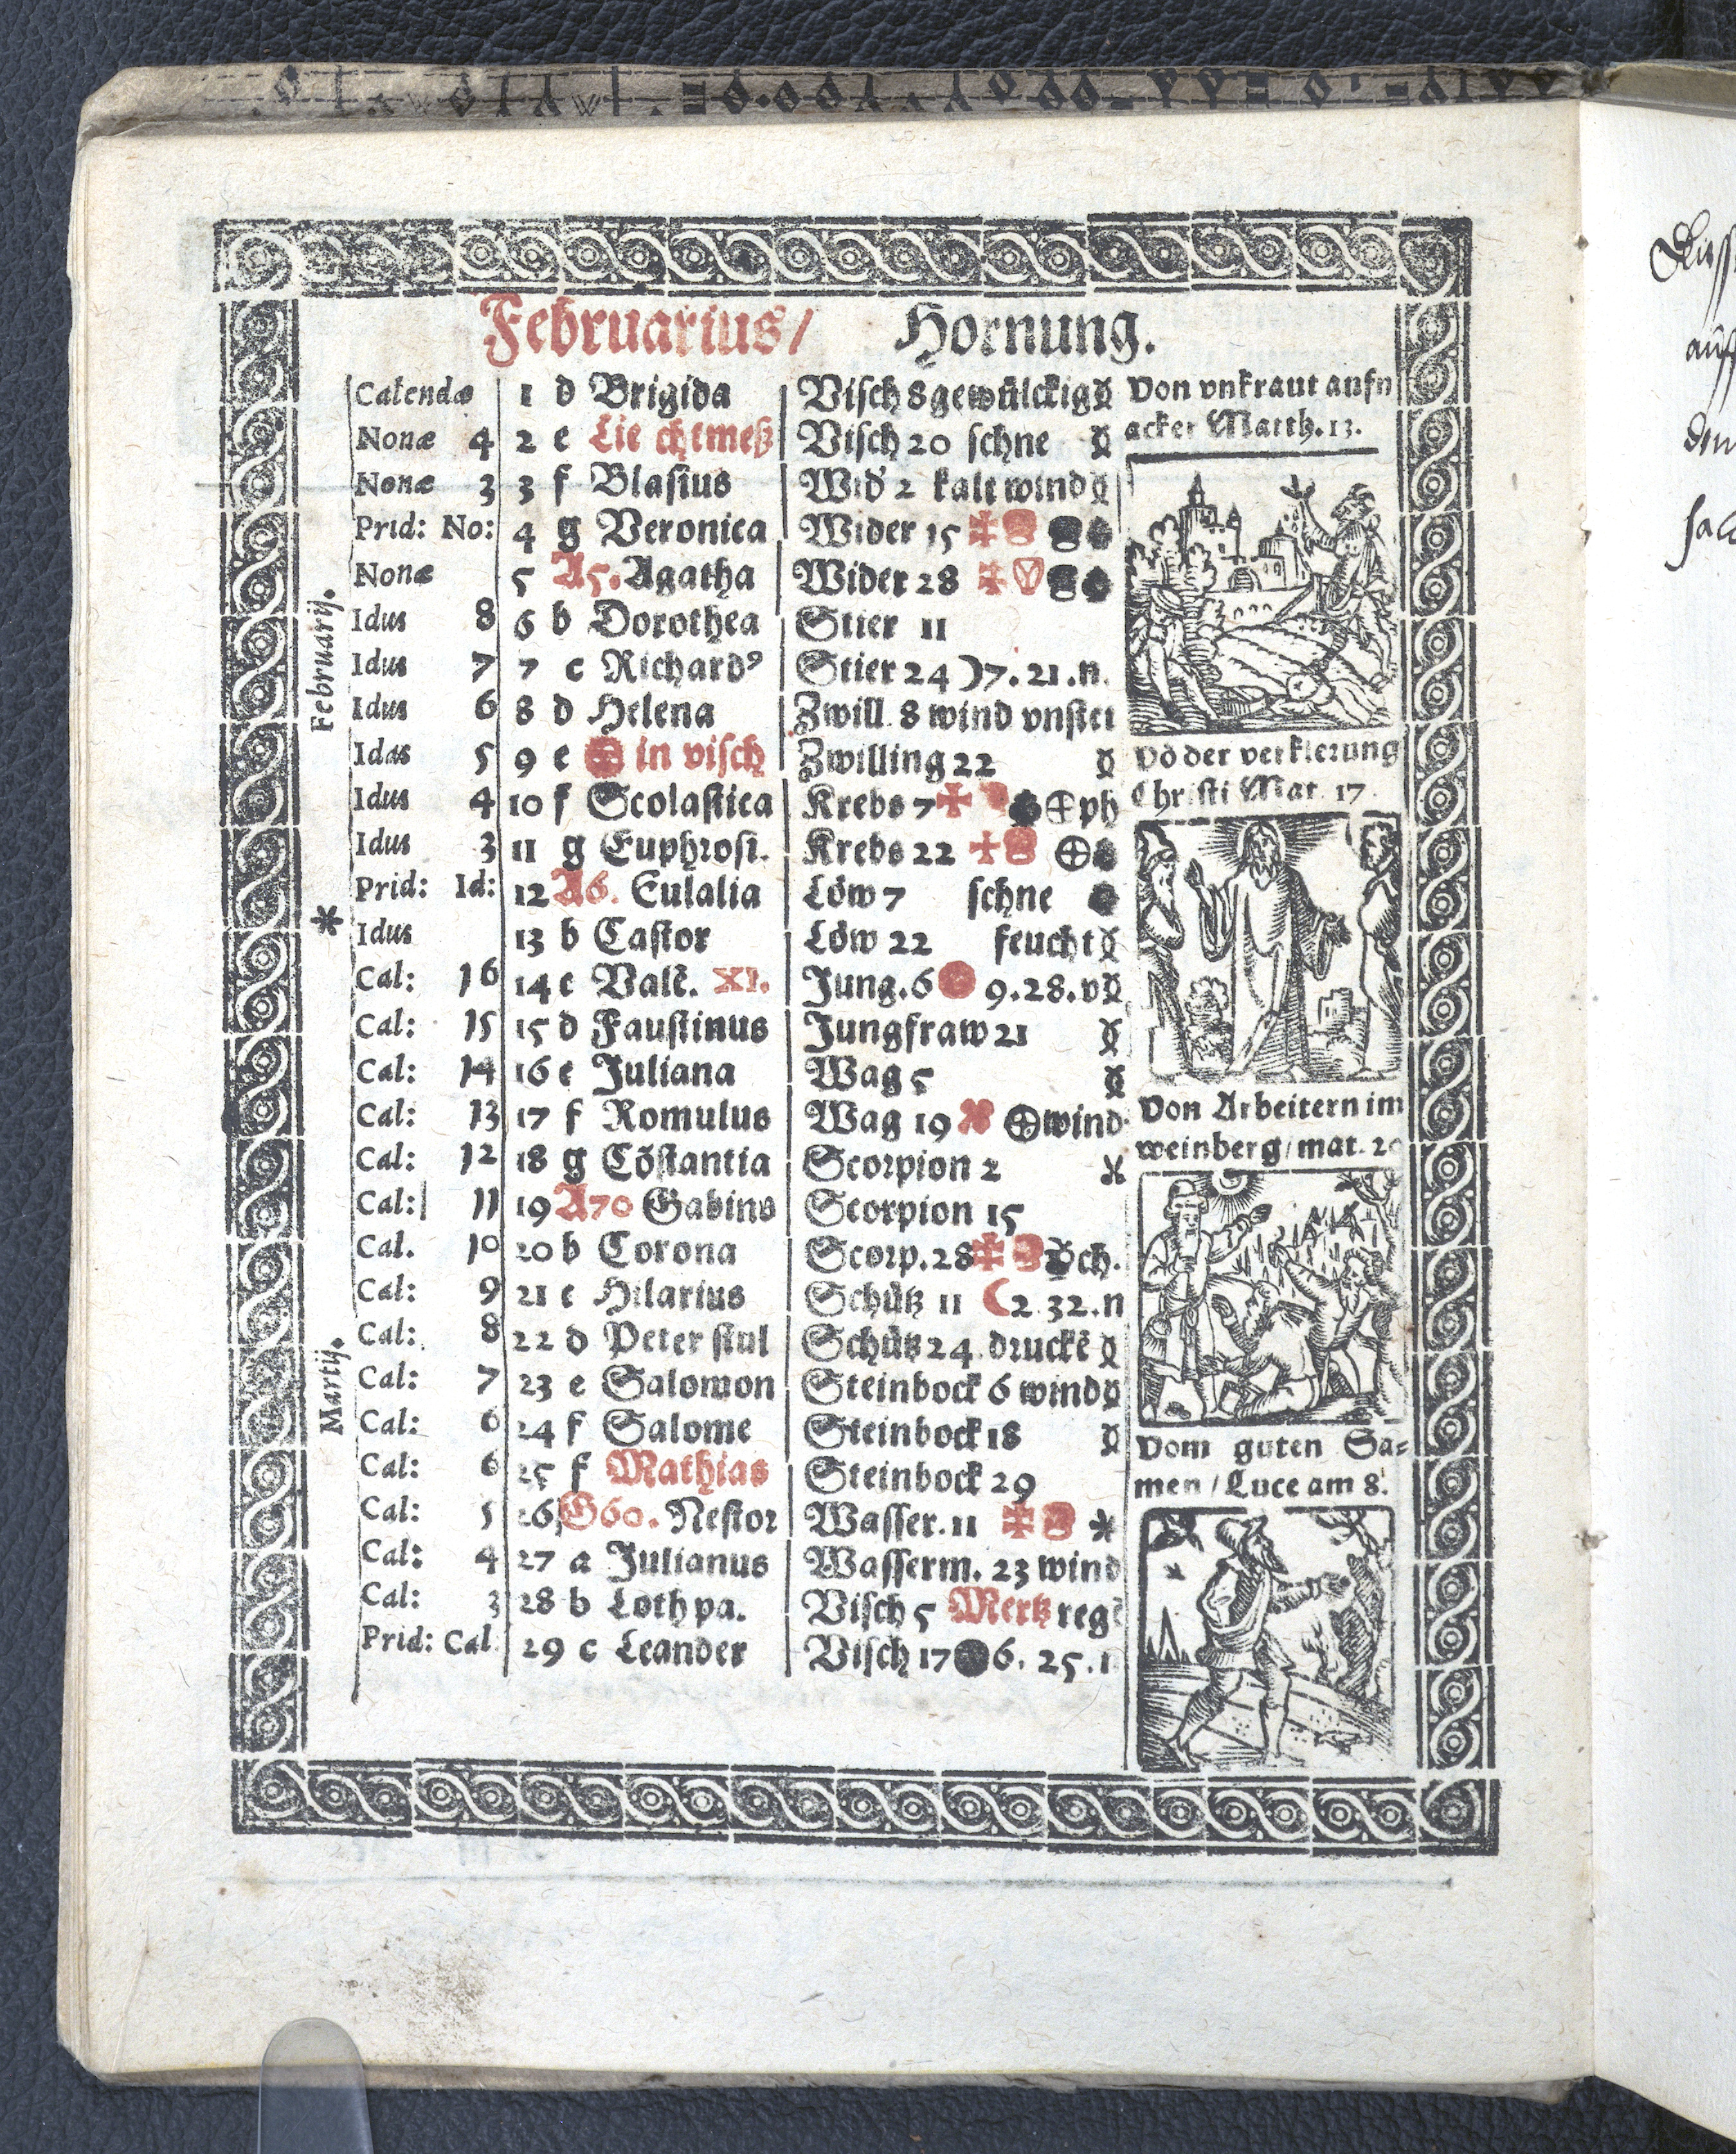 Februarius/ Hornung.
Calendæ 1 d Brigida Visch 8 gewülckig
Nonæ 4 2 e Lie chtmeß Visch 20 schne
Nonæ 3 3 f Blasius Wid 2 kalt wind
Prid: No: 4 g Veronica Wider 15
Nonæ 5 A5. Agatha Wider 28
Idus 8 6 b Dorothea Stier 11
Idus 7 7 c Richardꝰ Stier 24 )7. 21. n.
Idus 6 8 d Helena Zwill 8 wind vnstet
Idus 5 9 e in visch Zwilling 22
Idus 4 10 f Scolastica Krebs 7 ⊕ph
Idus 3 11 g Euphrosi. Krebs 22 ⊕
Prid: Id: 12 A6. Eulalia Löw 7 schne
* Idus 13 b Castor Löw 22 feucht
Cal: 16 14 c Valē. XI. Jung. 6 9. 28. v
Cal: 15 15 d Faustinus Jungfraw 21
Cal: 14 16 e Juliana Wag 5
Cal: 13 17 f Romulus Wag 19 ⊕wind
Cal: 12 18 g Cōstantia Scorpion 2
Cal: 11 19 A70 Gabinus Scorpion 15
Cal. 10 20 b Corona Scorp. 28
Cal: 9 21 c Hilarius Schütz 11 ☾2 32. n
Cal: 8 22 d Peter stul Schütz 24 druckē
Cal: 7 23 e Salomon Steinbock 6 wind
Cal: 6 24 f Salome Steinbock 18
Cal: 6 25 f Mathias Steinbock 29
Cal: 5 26 G60. Nestor Wasser. 11 *
Cal: 4 27 a Julianus Wasserm. 23 wind
Cal: 3 28 b Loth pa. Visch 5 Mertz regē
Prid: Cal 29 c Leander Visch 17 ● 6. 25.
Februarij.
Martij.
Von vnkraut aufn
acker Matth. 13.
Vō der verklerung
Christi Mat. 17.
Von Arbeitern im
weinberg/mat. 20
Vom guten Sa-
men / Luce am 8.